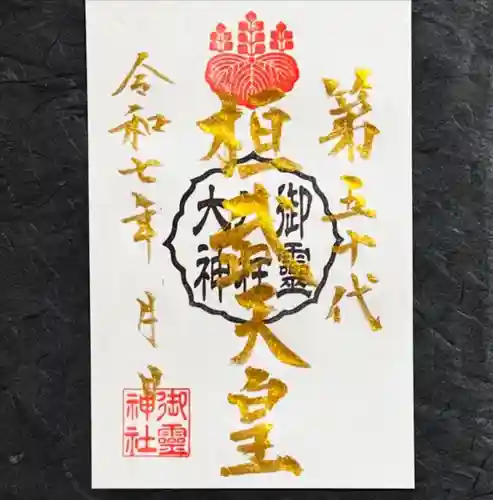 第五十代
桓武天皇
令和七年 月 日
御靈
八柱
大神
御靈
神社